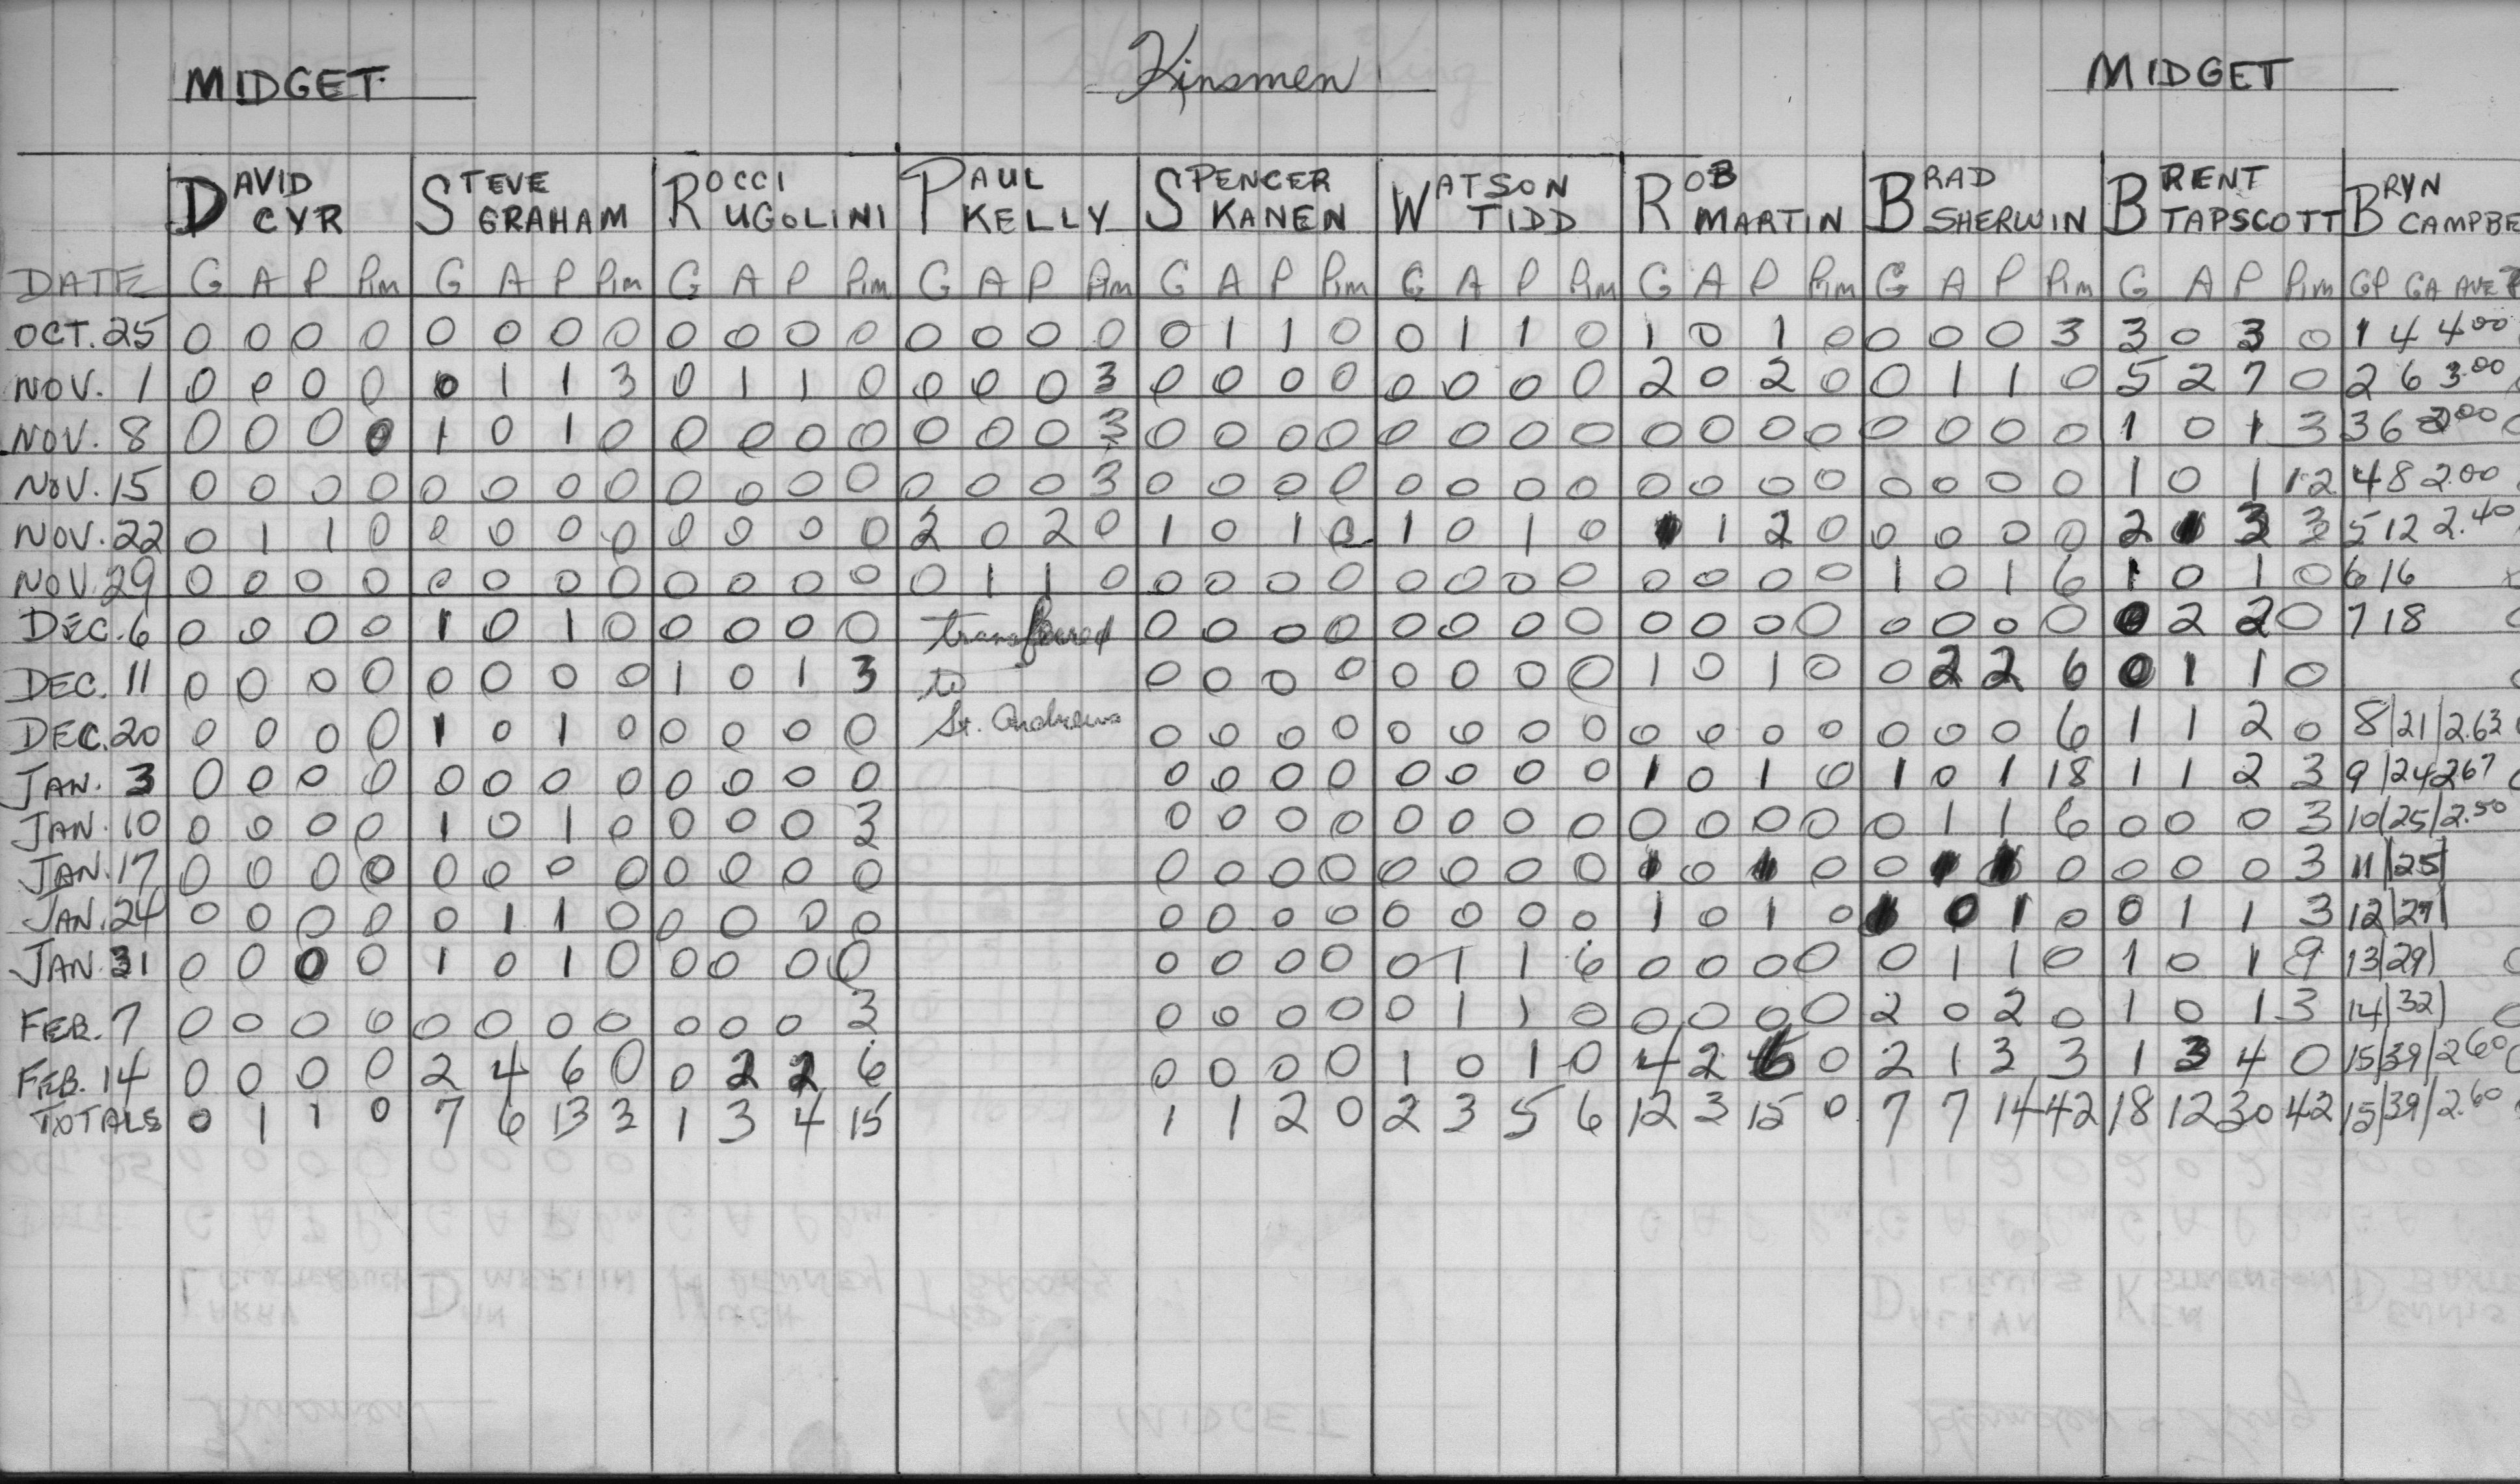 MIDGET Kinsmen MIDGET
DAVID CYR STEVE GRAHAM ROCCI UGOLINI PAUL KELLY SPENCER KANEN WATSON TIDD ROB MARTIN BRAD SHERWIN BRENT TAPSCOTT BRYN CAMPBE
DATE G A P Pim G A P Pim G A P Pim G A P Pim G A P Pim G A P Pim G A P Pim G A P Pim G A P Pim GP GA AVE
OCT. 25 0 0 0 0 0 0 0 0 0 0 0 0 0 0 0 0 0 1 1 0 0 1 1 0 1 0 1 0 0 0 0 3 3 0 3 0 1 4 4.00
NOV. 1 0 0 0 0 0 1 1 3 0 1 1 0 0 0 0 3 0 0 0 0 0 0 0 0 2 0 2 0 0 1 1 0 5 2 7 0 2 6 3.00
NOV. 8 0 0 0 0 1 0 1 0 0 0 0 0 0 0 0 3 0 0 0 0 0 0 0 0 0 0 0 0 0 0 0 0 1 0 1 3 3 6 2.00
NOV. 15 0 0 0 0 0 0 0 0 0 0 0 0 0 0 0 3 0 0 0 0 0 0 0 0 0 0 0 0 0 0 0 0 1 0 1 12 4 8 2.00
NOV. 22 0 1 1 0 0 0 0 0 0 0 0 0 2 0 2 0 1 0 1 0 1 0 1 0 1 1 2 0 0 0 0 0 2 1 3 3 5 12 2.40
NOV. 29 0 0 0 0 0 0 0 0 0 0 0 0 0 1 1 0 0 0 0 0 0 0 0 0 0 0 0 0 1 0 1 6 1 0 1 0 6 16
DEC. 6 0 0 0 0 1 0 1 0 0 0 0 0 transferred 0 0 0 0 0 0 0 0 0 0 0 0 0 0 0 0 0 2 2 0 7 18
DEC. 11 0 0 0 0 0 0 0 0 1 0 1 3 to 0 0 0 0 0 0 0 0 1 0 1 0 0 2 2 6 0 1 1 0
DEC. 20 0 0 0 0 1 0 1 0 0 0 0 0 St. Andrews 0 0 0 0 0 0 0 0 0 0 0 0 0 0 0 6 1 1 2 0 8|21|2.63
JAN. 3 0 0 0 0 0 0 0 0 0 0 0 0 0 0 0 0 0 0 0 0 1 0 1 0 1 0 1 18 1 1 2 3 9|24 2.67
JAN. 10 0 0 0 0 1 0 1 0 0 0 0 3 0 0 0 0 0 0 0 0 0 0 0 0 0 1 1 6 0 0 0 3 10|25|2.50
JAN. 17 0 0 0 0 0 0 0 0 0 0 0 0 0 0 0 0 0 0 0 0 1 0 1 0 0 1 1 0 0 0 0 3 11|25|
JAN. 24 0 0 0 0 0 1 1 0 0 0 0 0 0 0 0 0 0 0 0 0 1 0 1 0 1 0 1 0 0 1 1 3 12|27|
JAN. 31 0 0 0 0 1 0 1 0 0 0 0 0 0 0 0 0 0 1 1 6 0 0 0 0 0 1 1 0 1 0 1 9 13|29|
FEB. 7 0 0 0 0 0 0 0 0 0 0 0 3 0 0 0 0 0 1 1 0 0 0 0 0 2 0 2 0 1 0 1 3 14|32|
FEB. 14 0 0 0 0 2 4 6 0 0 2 2 6 0 0 0 0 1 0 1 0 4 2 6 0 2 1 3 3 1 3 4 0 15|39|2.60
TOTALS 0 1 1 0 7 6 13 3 1 3 4 15 1 1 2 0 2 3 5 6 12 3 15 0 7 7 14 42 18 12 30 42 15|39|2.60